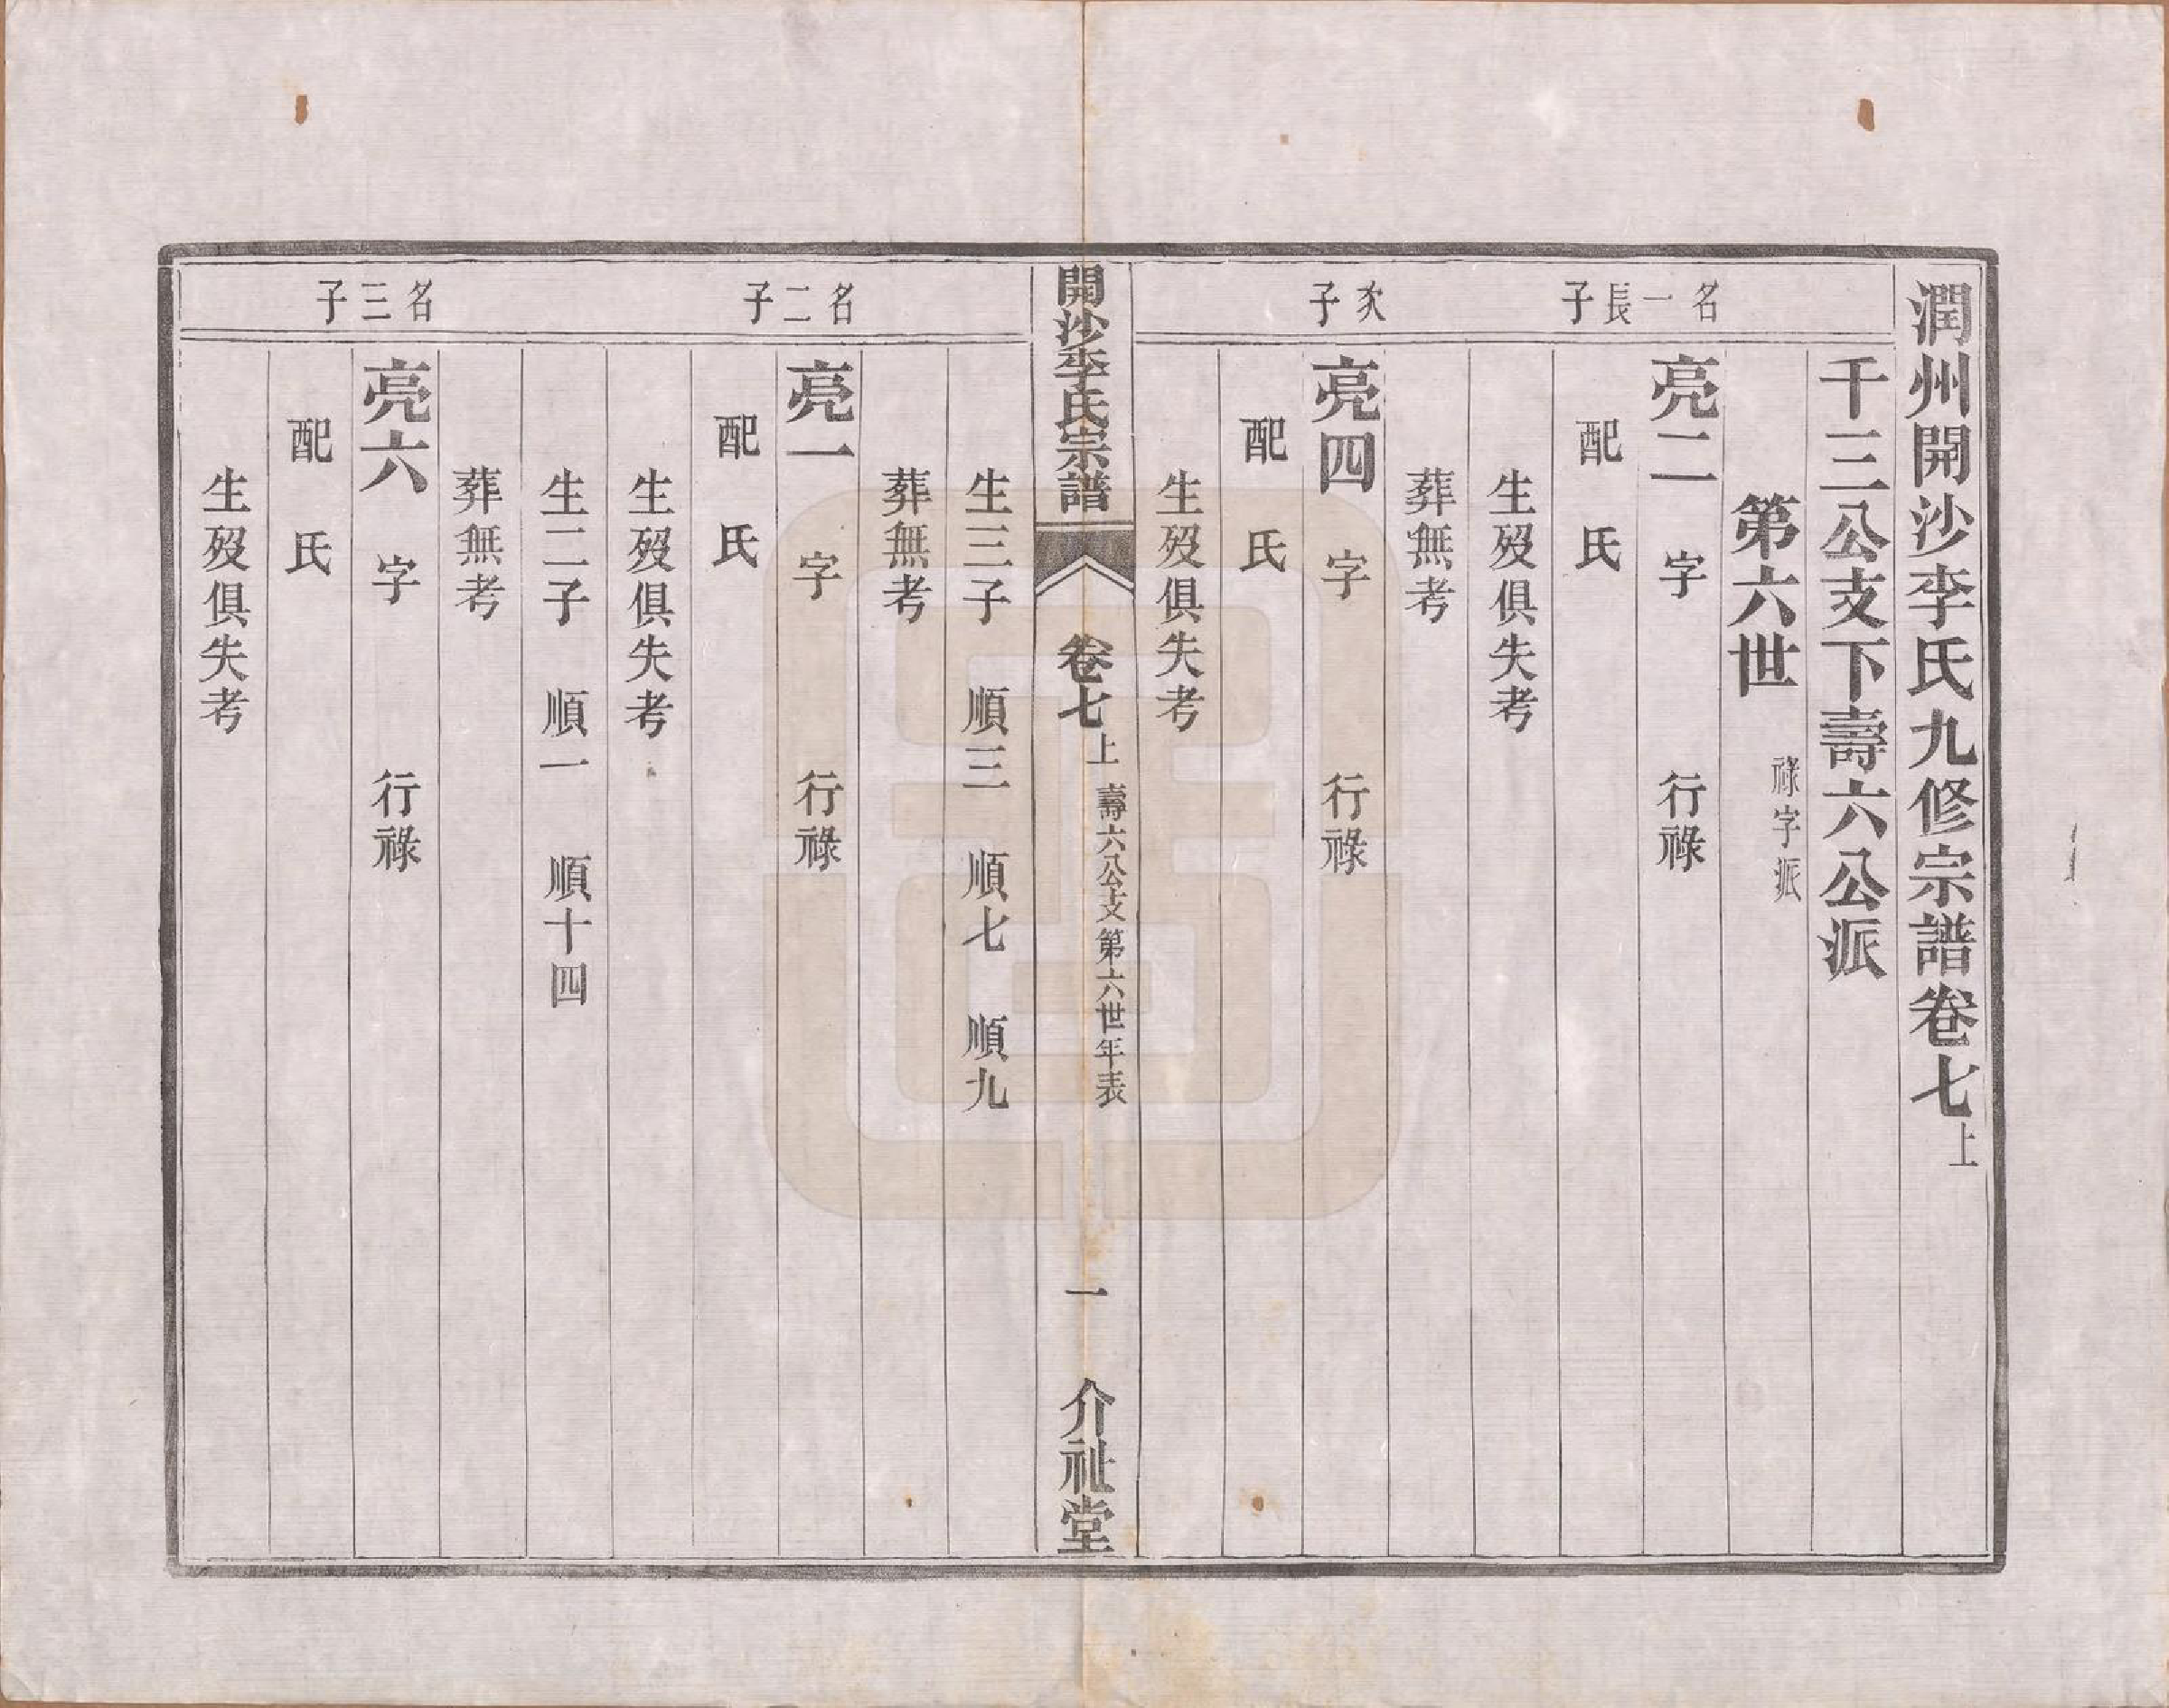 潤州開沙李氏九修宗譜卷七上
千三公支下壽六公派
第六世 祿字派
名一長子
亮二 字 行祿
配 氏
生歿俱失考
葬無考
次子
亮四 字 行祿
配 氏
生歿俱失考
開沙李氏宗譜 卷七上 壽六公支第六世年表 一 介祉堂
生三子 順三 順七 順九
葬無考
名二子
亮一 字 行祿
配 氏
生歿俱失考
生二子 順一 順十四
葬無考
名三子
亮六 字 行祿
配 氏
生歿俱失考